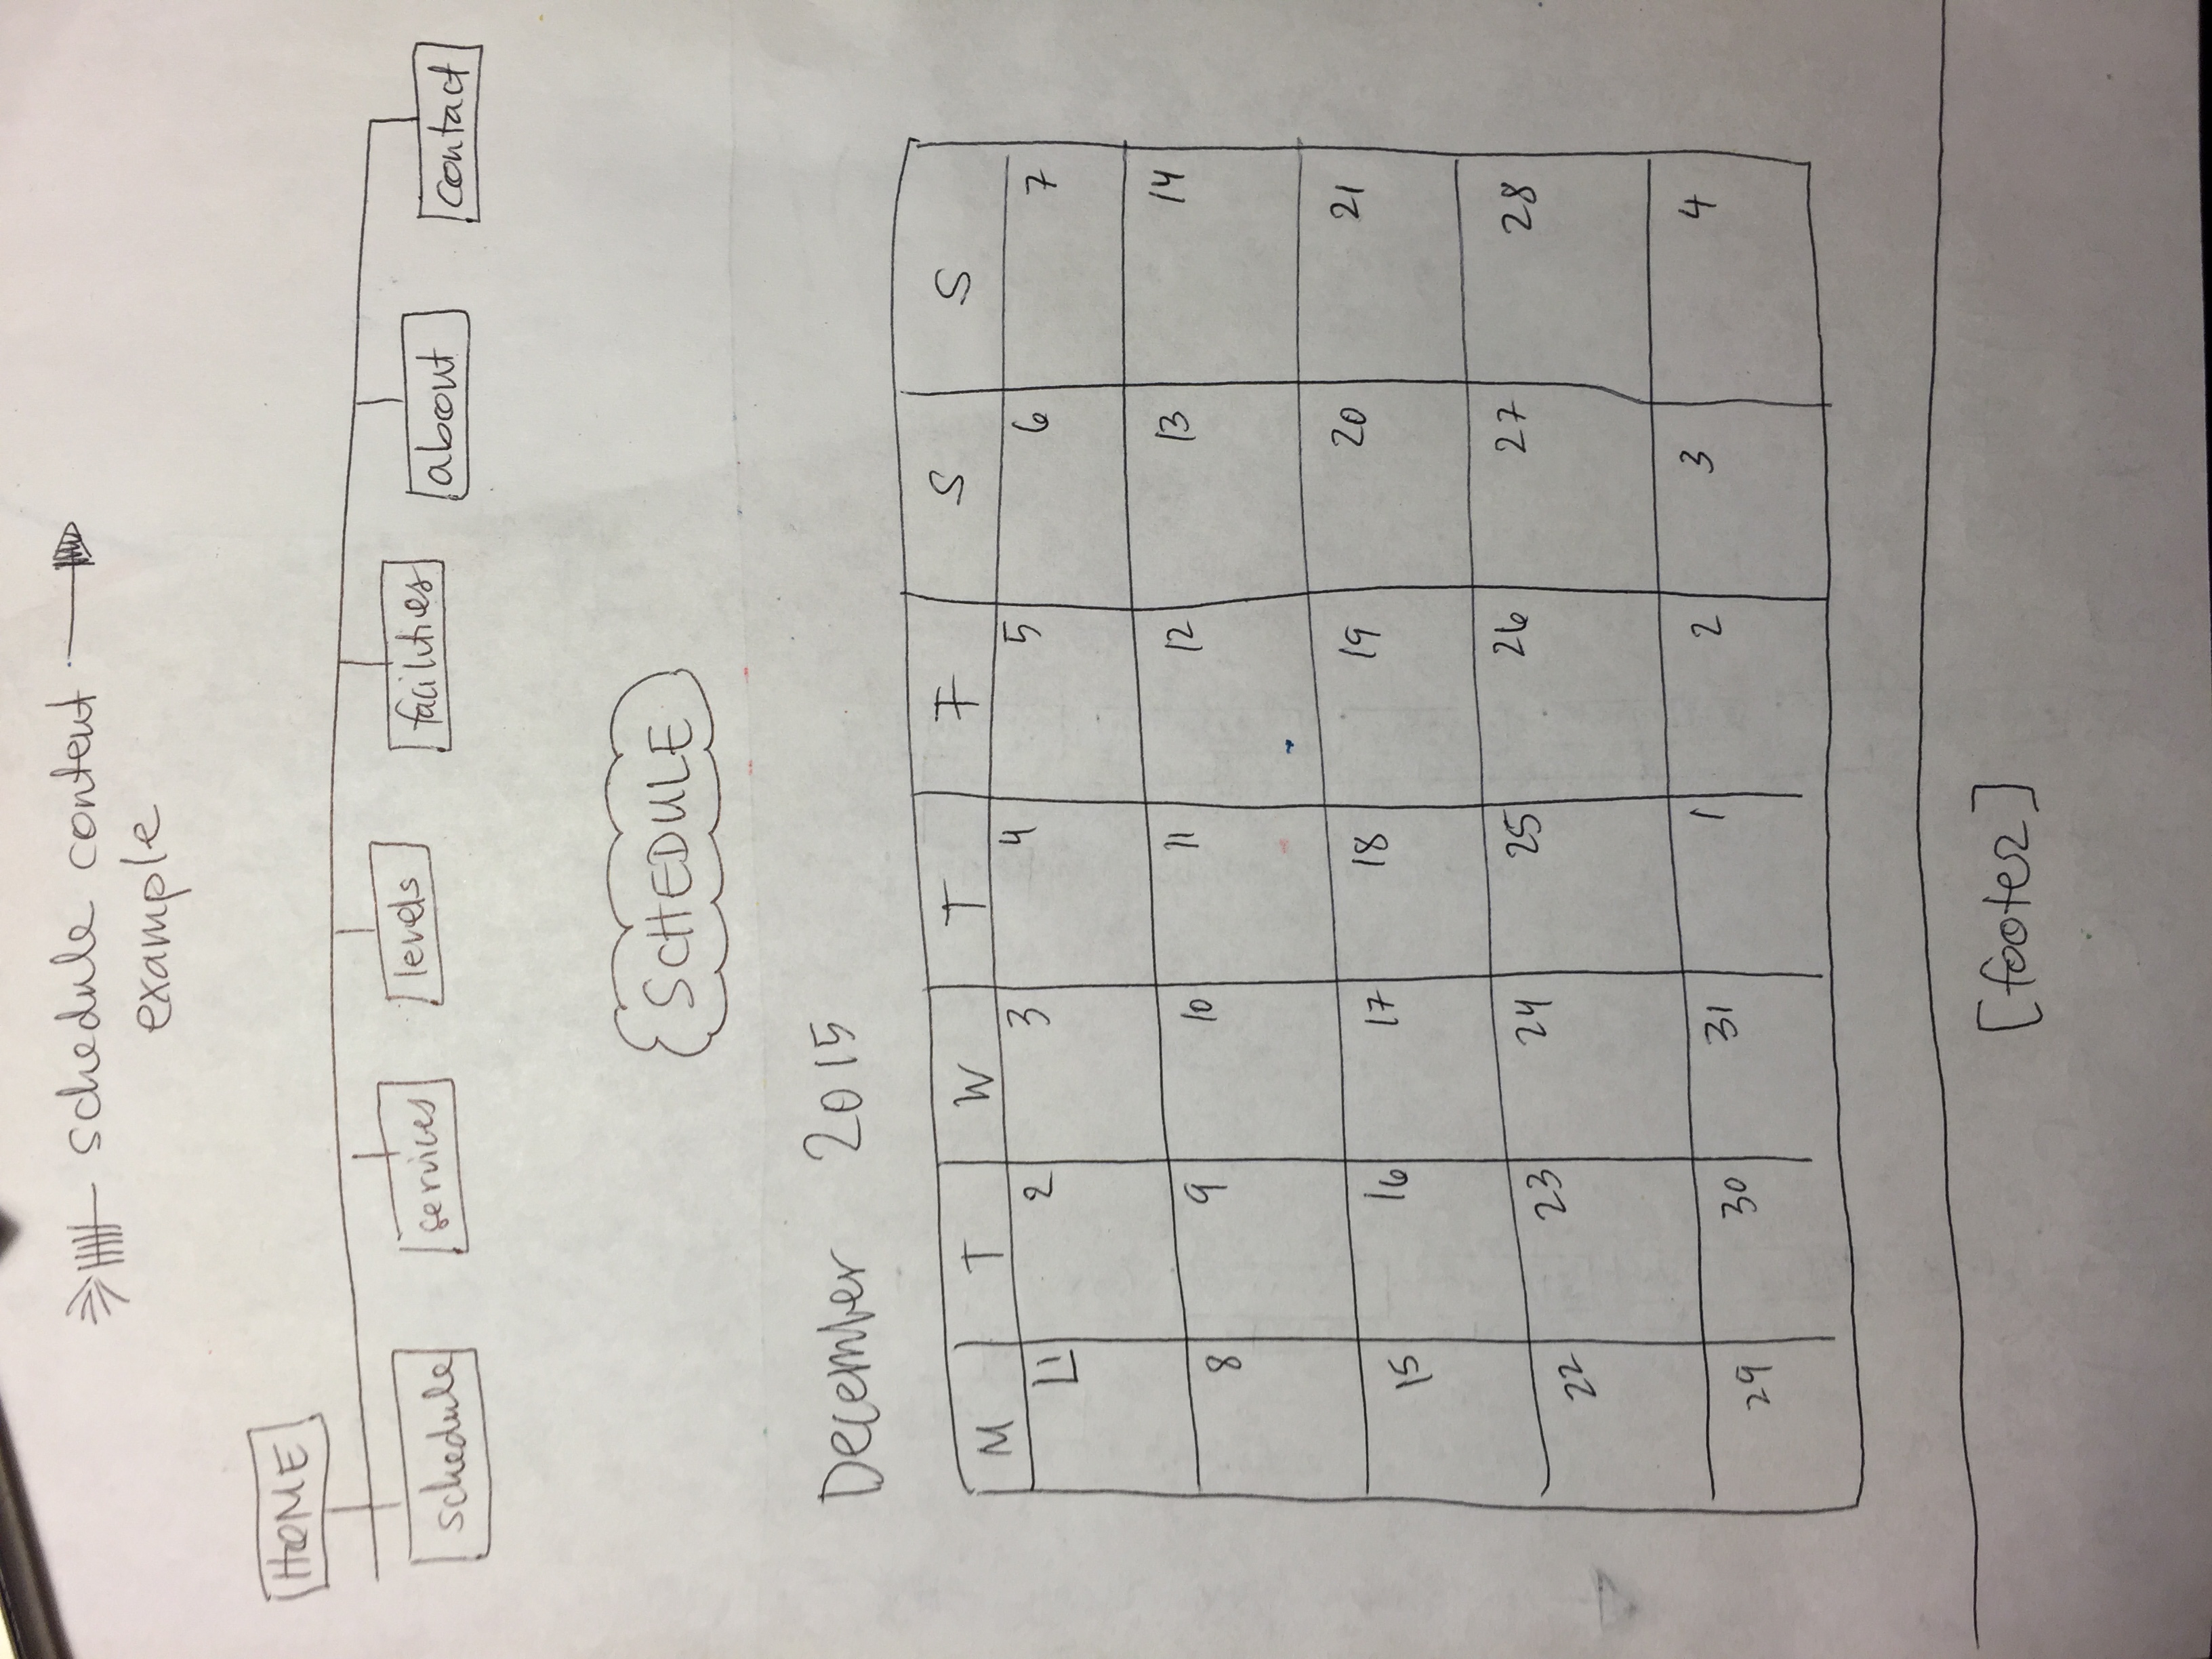 schedule content
example
HOME
schedule services levels facilities about contact
SCHEDULE
December 2015
M T W T F S S
1 2 3 4 5 6 7
8 9 10 11 12 13 14
15 16 17 18 19 20 21
22 23 24 25 26 27 28
29 30 31 1 2 3 4
[footer]